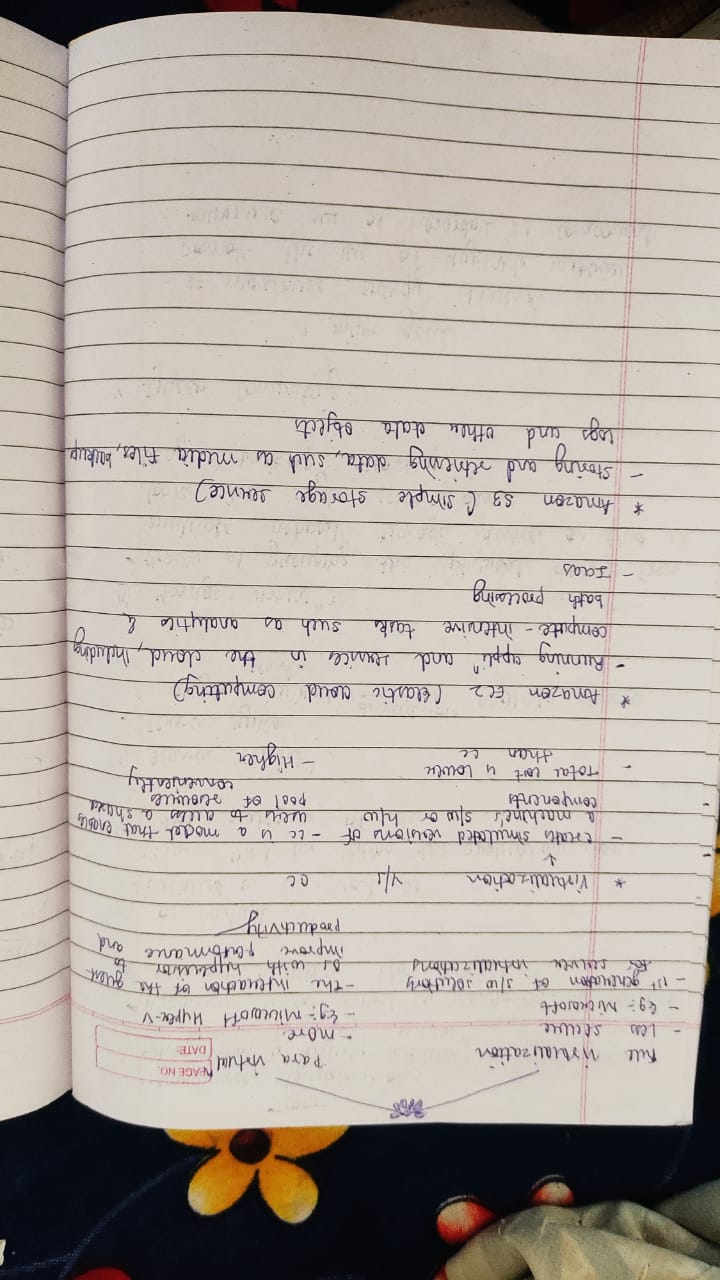 Full virtualization
- Less secure
- Eg:- Microsoft
- 1st generation of s/w solutions
for server virtualizations
Para virtual
PAGE NO.
DATE:
- more.
- Eg:- Microsoft Hyper-V
- The interaction of the guest
os with hypervisor to
improve performance and
productivity
* Virtualization V/s CC
↓
- Creates simulated versions of
a machine's s/w or h/w
components
- Total cost is lower
than cc
- CC is a model that enables
users to access a shared
pool of resources
conveniently
- Higher
* Amazon EC2 (Elastic cloud computing)
- Running appliⁿ and services in the cloud, including
compute-intensive tasks such as analytics &
bath processing
- IaaS
* Amazon S3 (Simple storage service)
- Storing and retrieving data, such as media files, backup
logs and other data objects